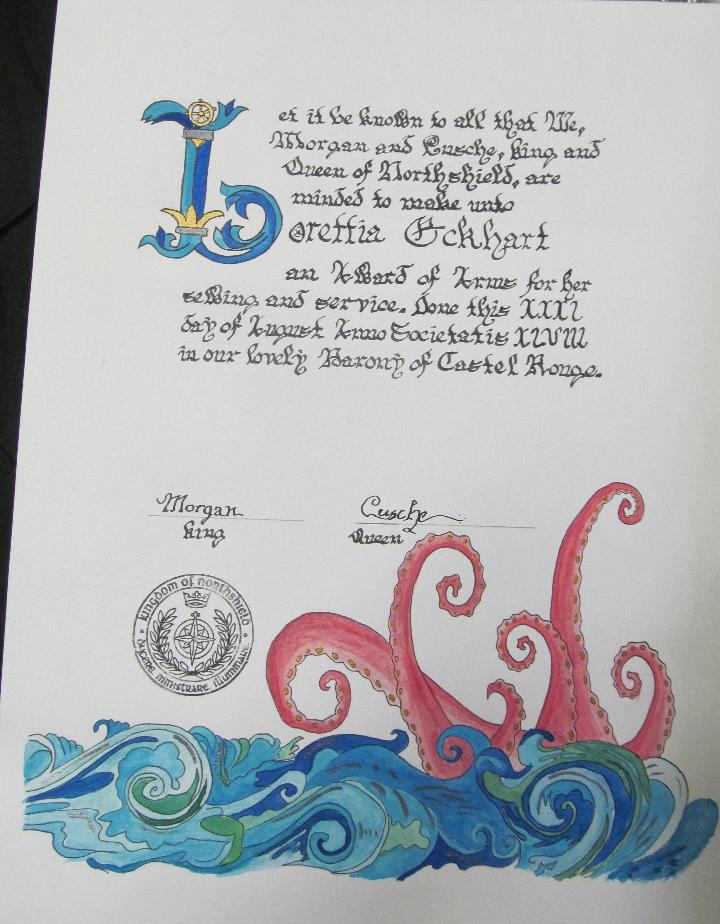 Let it be known to all that We,
Morgan and Eusche, King and
Queen of Northshield, are
minded to make unto
Lorettia Eckhart
an Award of Arms for her
sewing and service. Done this XXXI
day of August Anno Societatis XLVIII
in our lovely Barony of Castel Rouge.
Morgan Eusche
King Queen
kingdom of northshield
ministrare illuminare